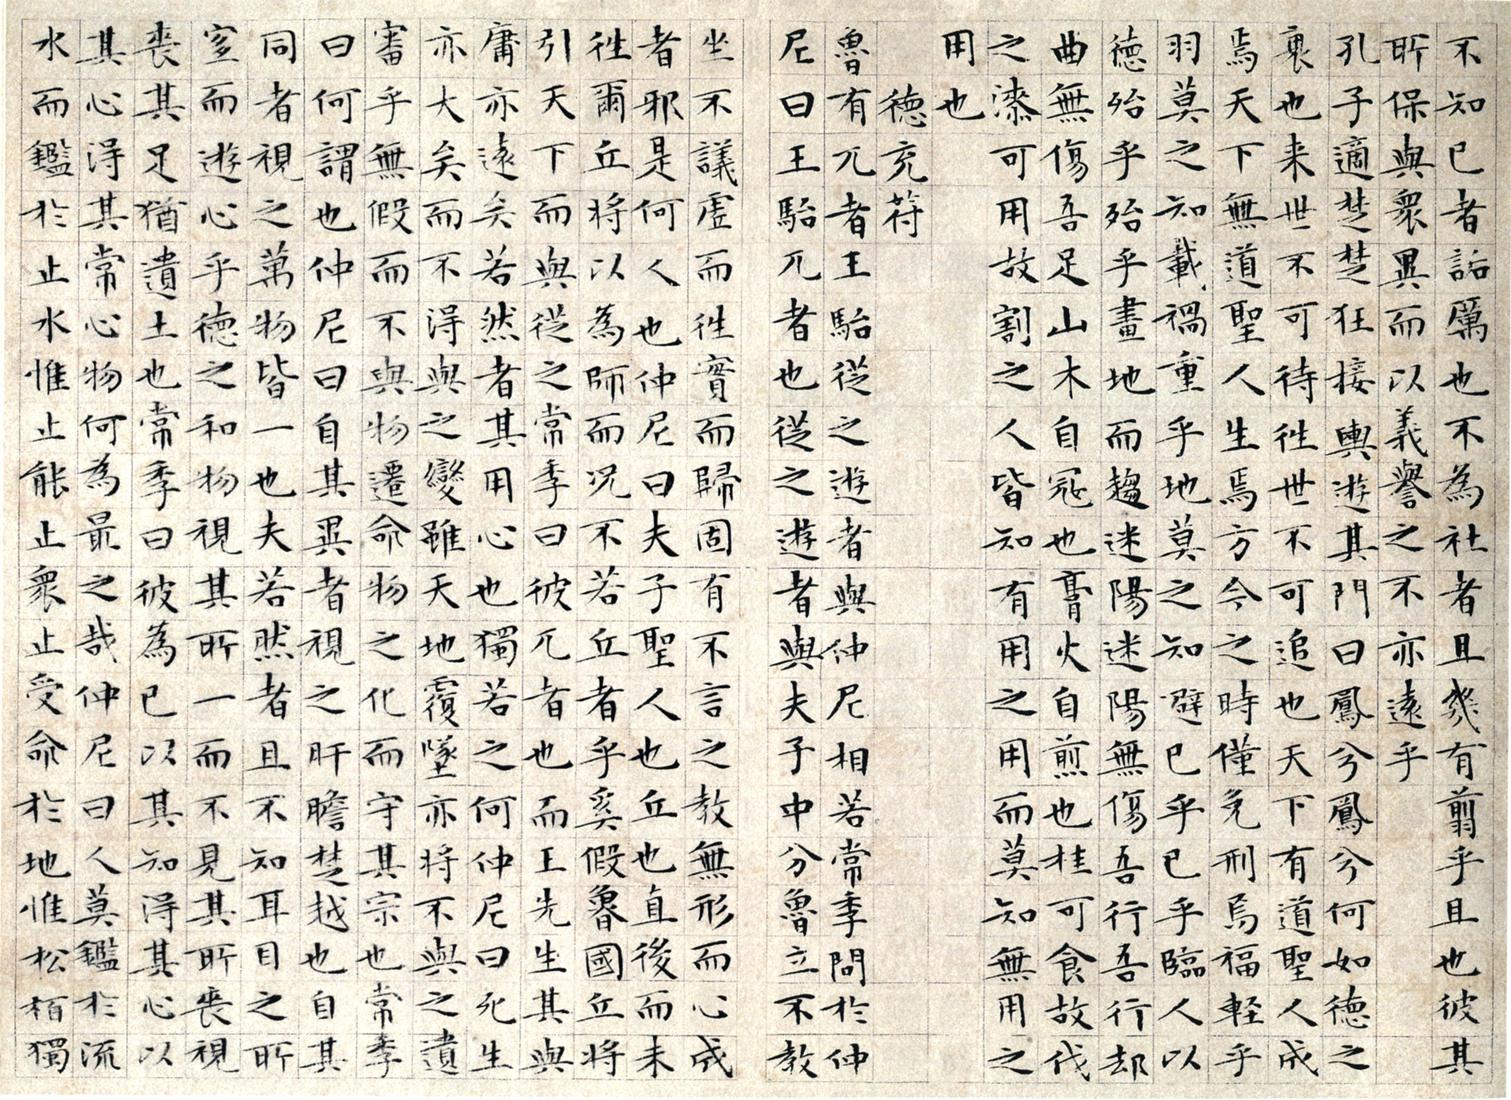 不知已者詬厲也不為社者且幾有翦乎且也彼其
所保與眾異而以義譽之不亦遠乎
孔子適楚楚狂接輿遊其門曰鳳兮鳳兮何如德之
衰也来世不可待往世不可追也天下有道聖人成
焉天下無道聖人生焉方今之時僅免刑焉福輕乎
羽莫之知載禍重乎地莫之知避已乎已乎臨人以
德殆乎殆乎畫地而趨迷陽迷陽無傷吾行吾行却
曲無傷吾足山木自冦也膏火自煎也桂可食故伐
之漆可用故割之人皆知有用之用而莫知無用之
用也
德充符
魯有兀者王駘從之遊者與仲尼相若常季問於仲
尼曰王駘兀者也從之遊者與夫子中分魯立不教
坐不議虛而往實而歸固有不言之教無形而心成
者邪是何人也仲尼曰夫子聖人也丘也直後而未
往爾丘將以為師而況不若丘者乎奚假魯國丘將
引天下而與從之常季曰彼兀者也而王先生其與
庸亦遠矣若然者其用心也獨若之何仲尼曰死生
亦大矣而不得與之變雖天地覆墜亦將不與之遺
審乎無假而不與物遷命物之化而守其宗也常季
曰何謂也仲尼曰自其異者視之肝膽楚越也自其
同者視之萬物皆一也夫若然者且不知耳目之所
宜而遊心乎德之和物視其所一而不見其所喪視
喪其足猶遺土也常季曰彼為已以其知得其心以
其心得其常心物何為最之哉仲尼曰人莫鑑於流
水而鑑於止水惟止能止眾止受命於地惟松栢獨